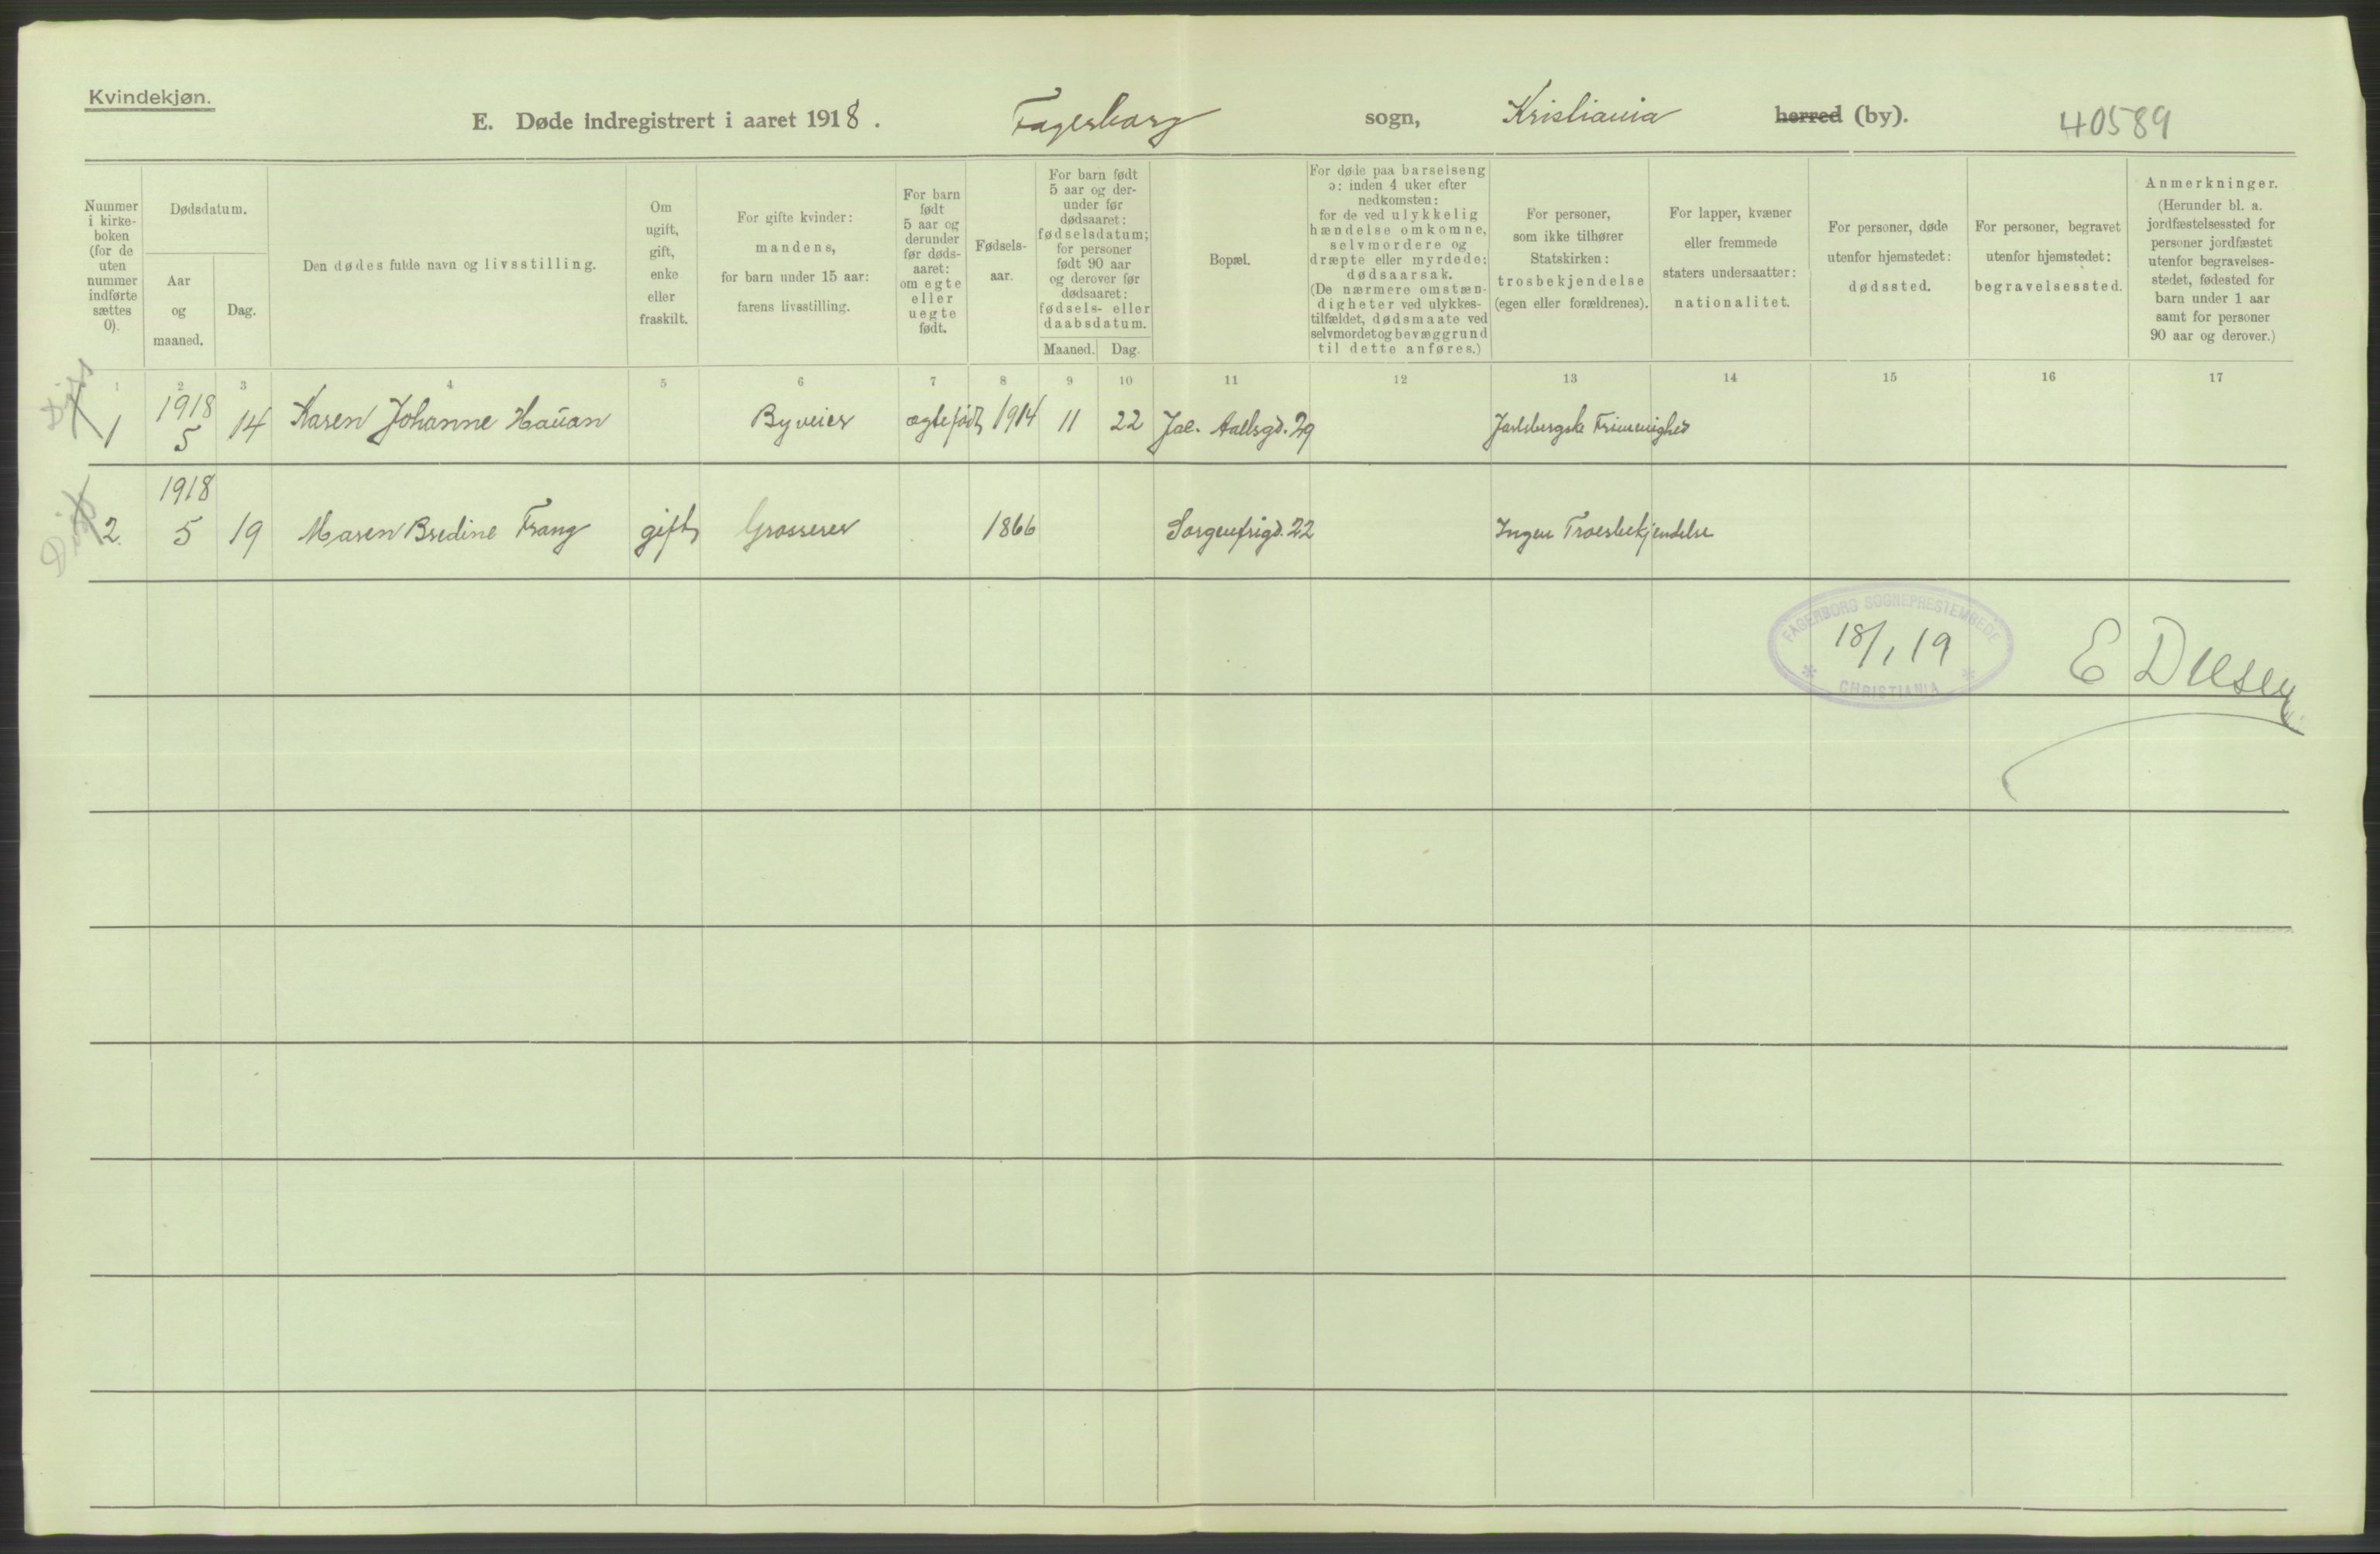 Kvindekjøn.
E. Døde indregistrert i aaret 1918. Fagerborg sogn, Kristiania herred (by). 40589
Nummer
i kirke-
boken
(for de
uten
nummer
indførte
sættes
0).
Dødsdatum.
Aar
og
maaned.
Dag.
Den dødes fulde navn og livsstilling.
Om
ugift,
gift,
enke
eller
fraskilt.
For gifte kvinder:
mandens,
for barn under 15 aar:
farens livsstilling.
For barn
født
5 aar og
derunder
før døds-
aaret:
om egte
eller
uegte
født.
Fødsels-
aar.
For barn født
5 aar og der-
under før
dødsaaret:
fødselsdatum;
for personer
født 90 aar
og derover før
dødsaaret:
fødsels- eller
daabsdatum.
Maaned. Dag.
Bopæl.
For døde paa barselseng
ɔ: inden 4 uker efter
nedkomsten:
for de ved ulykkelig
hændelse omkomne,
selvmordere og
dræpte eller myrdede:
dødsaarsak.
(De nærmere omstæn-
digheter ved ulykkes-
tilfældet, dødsmaate ved
selvmordet og bevæggrund
til dette anføres.)
For personer,
som ikke tilhører
Statskirken:
trosbekjendelse
(egen eller forældrenes).
For lapper, kvæner
eller fremmede
staters undersaatter:
nationalitet.
For personer, døde
utenfor hjemstedet:
dødssted.
For personer, begravet
utenfor hjemstedet:
begravelsessted.
Anmerkninger.
(Herunder bl. a.
jordfæstelsessted for
personer jordfæstet
utenfor begravelses-
stedet, fødested for
barn under 1 aar
samt for personer
90 aar og derover.)
1 2 3 4 5 6 7 8 9 10 11 12 13 14 15 16 17
1 1918 5 14 Karen Johanne Hauan Byveier ægtefødt 1914 11 22 Jac. Aallsgd. 29 Jarlsbergske Frimenighed
2. 1918 5 19 Maren Bredine Frang gift Grosserer 1866 Sorgenfrigd. 22 Ingen Troesbekjendelse
FAGERBORG SOGNEPRESTEMBEDE
18/1 19
CHRISTIANIA